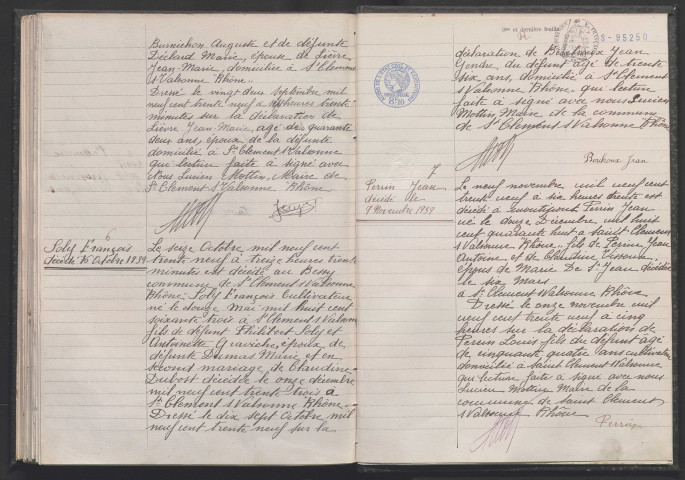 Burnichon Auguste et de défunte
Déclard Marie, épouse de Lièvre
Jean-Marie, domiciliée à St Clément
s/Valsonne Rhône.
Dressé le vingt deux Septembre mil
neuf cent trente neuf à heures trente
minutes sur la déclaration de
Lièvre Jean-Marie, âgé de quarante
deux ans, époux de la défunte
domicilié à St Clément s/Valsonne
qui lecture faite a signé avec
Nous Lucien Mottin, Maire de
St Clément s/Valsonne Rhône
6
Soly François
décédé 16 Octobre 1939
Le seize Octobre mil neuf cent
trente neuf à treize heures trente
minutes est décédé au Berry
commune de St Clément s/Valsonne
Rhône, Soly François Cultivateur
né le douze Mai mil huit cent
soixante trois à St Clément s/Valsonne
fils de défunt Philibert Soly et
Antoinette Graviche, époux de
défunte Dumas Marie et en
second mariage de Claudine
Dubost décédée le onze décembre
mil neuf cent trente trois à
St Clément s/Valsonne Rhône.
Dressé le dix sept Octobre mil
neuf cent trente neuf sur la
et dernière feuille
S-95250
déclaration de Berchoux Jean
Gendre du défunt âgé de trente
six ans, domicilié à St Clément
s/Valsonne Rhône qui lecture
faite a signé avec nous Lucien
Mottin Maire de la commune
de St Clément s/Valsonne Rhône
Berchoux Jean
7
Perrin Jean
décédé le
9 Novembre 1939
Le neuf novembre mil neuf cent
trente neuf à six heures trente est
décédé à Perrin Jean
né le douze Décembre mil huit
cent quarante huit à Saint Clément
s/Valsonne Rhône, fils de Perrin Jean
Antoine et de Claudine
époux de Marie De St Jean décédée
le six Mars
à St Clément s/Valsonne Rhône
Dressé le onze novembre mil
neuf cent trente neuf à cinq
heures sur la déclaration de
Perrin Louis fils du défunt âgé
de cinquante quatre ans cultivateur
domicilié à Saint Clément s/Valsonne
qui lecture faite a signé avec nous
Lucien Mottin Maire de la
commune de Saint Clément
s/Valsonne Rhône
Perrin